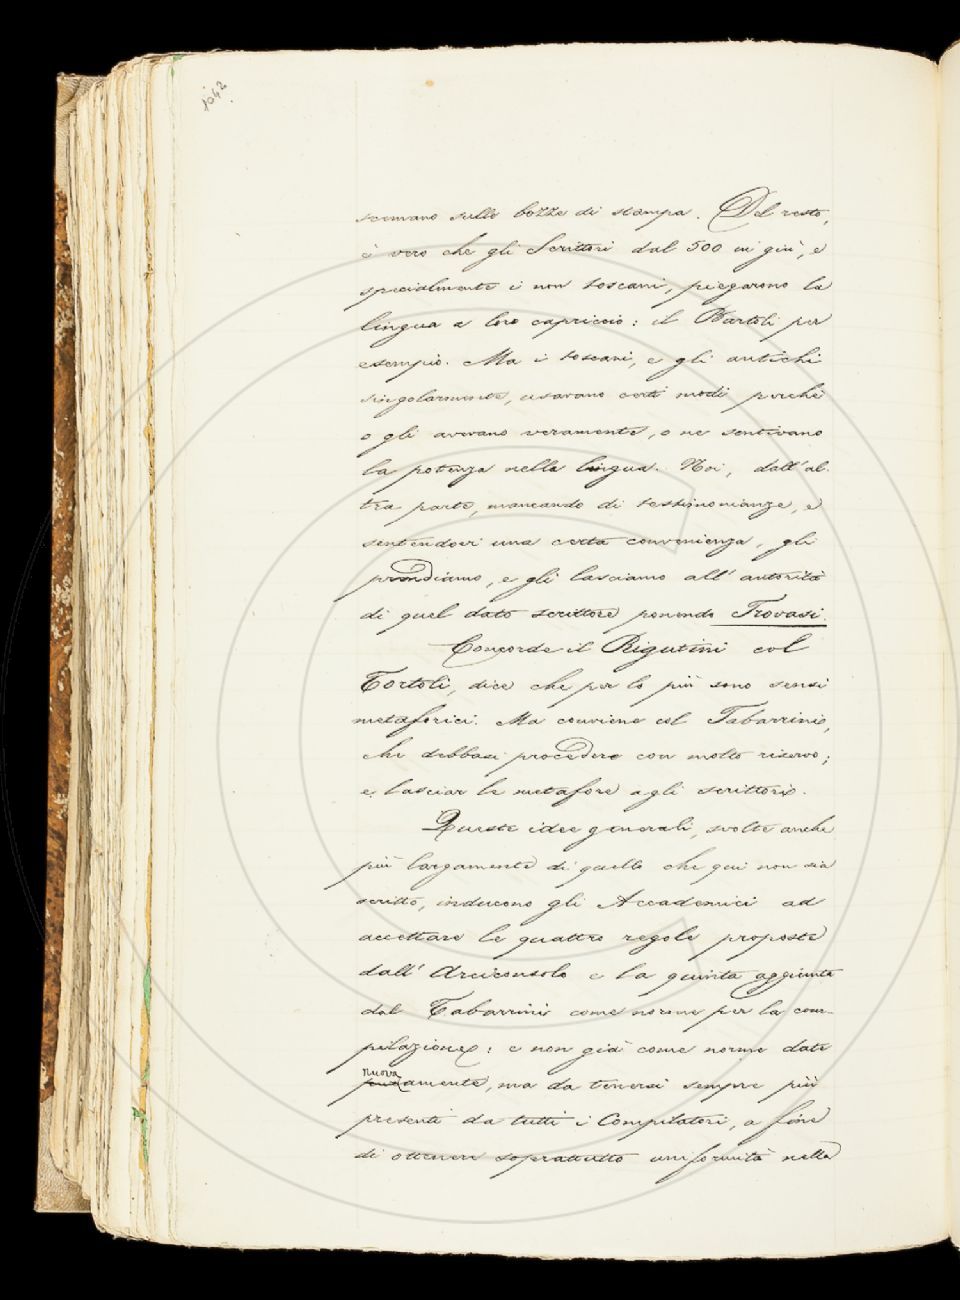 1042
scemano sulle bozze di stampa. Del resto,
è vero che gli Scrittori dal 500 in giù, e
specialmente i non toscani, piegarono la
lingua a loro capriccio: il Bartoli per
esempio. Ma i toscani, e gli antichi
singolarmente, usavano certi modi perchè
o gli avevano veramente, o ne sentivano
la potenza nella lingua. Noi, dall'al-
tra parte, mancando di testimonianze, e
sentendoci una certa convenienza, gli
prendiamo, e gli lasciamo all'autorità
di quel dato scrittore ponendo Trovasi.
Concorde il Rigutini col
Tortoli, dice che per lo più sono sensi
metaforici. Ma conviene col Tabarrini,
che debbasi procedere con molto riserbo;
e lasciar le metafore agli scrittori.
Queste idee generali, svolte anche
più largamente di quello che qui non sia
scritto, inducono gli Accademici ad
accettare le quattro regole proposte
dall'Arciconsolo e la quinta aggiunta
dal Tabarrini come norme per la com-
pilazione: e non già come norme date
nuova
amente, ma da tenersi sempre più
presenti da tutti i Compilatori, a fine
di ottenere soprattutto uniformità nella